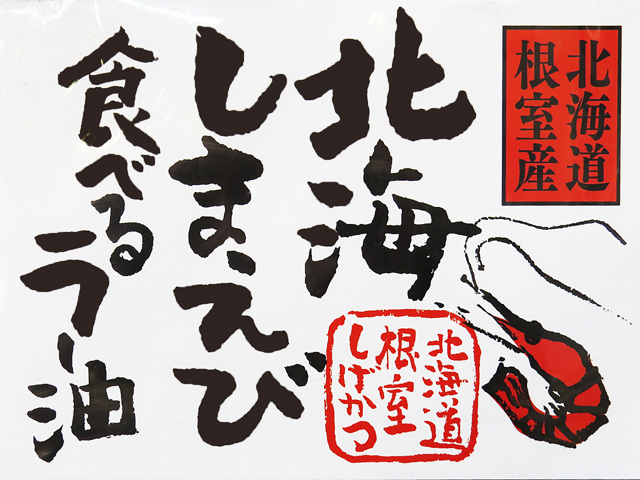 北海道
根室産
北海
しまえび
食べるラー油
北海道
根室
しげかつ